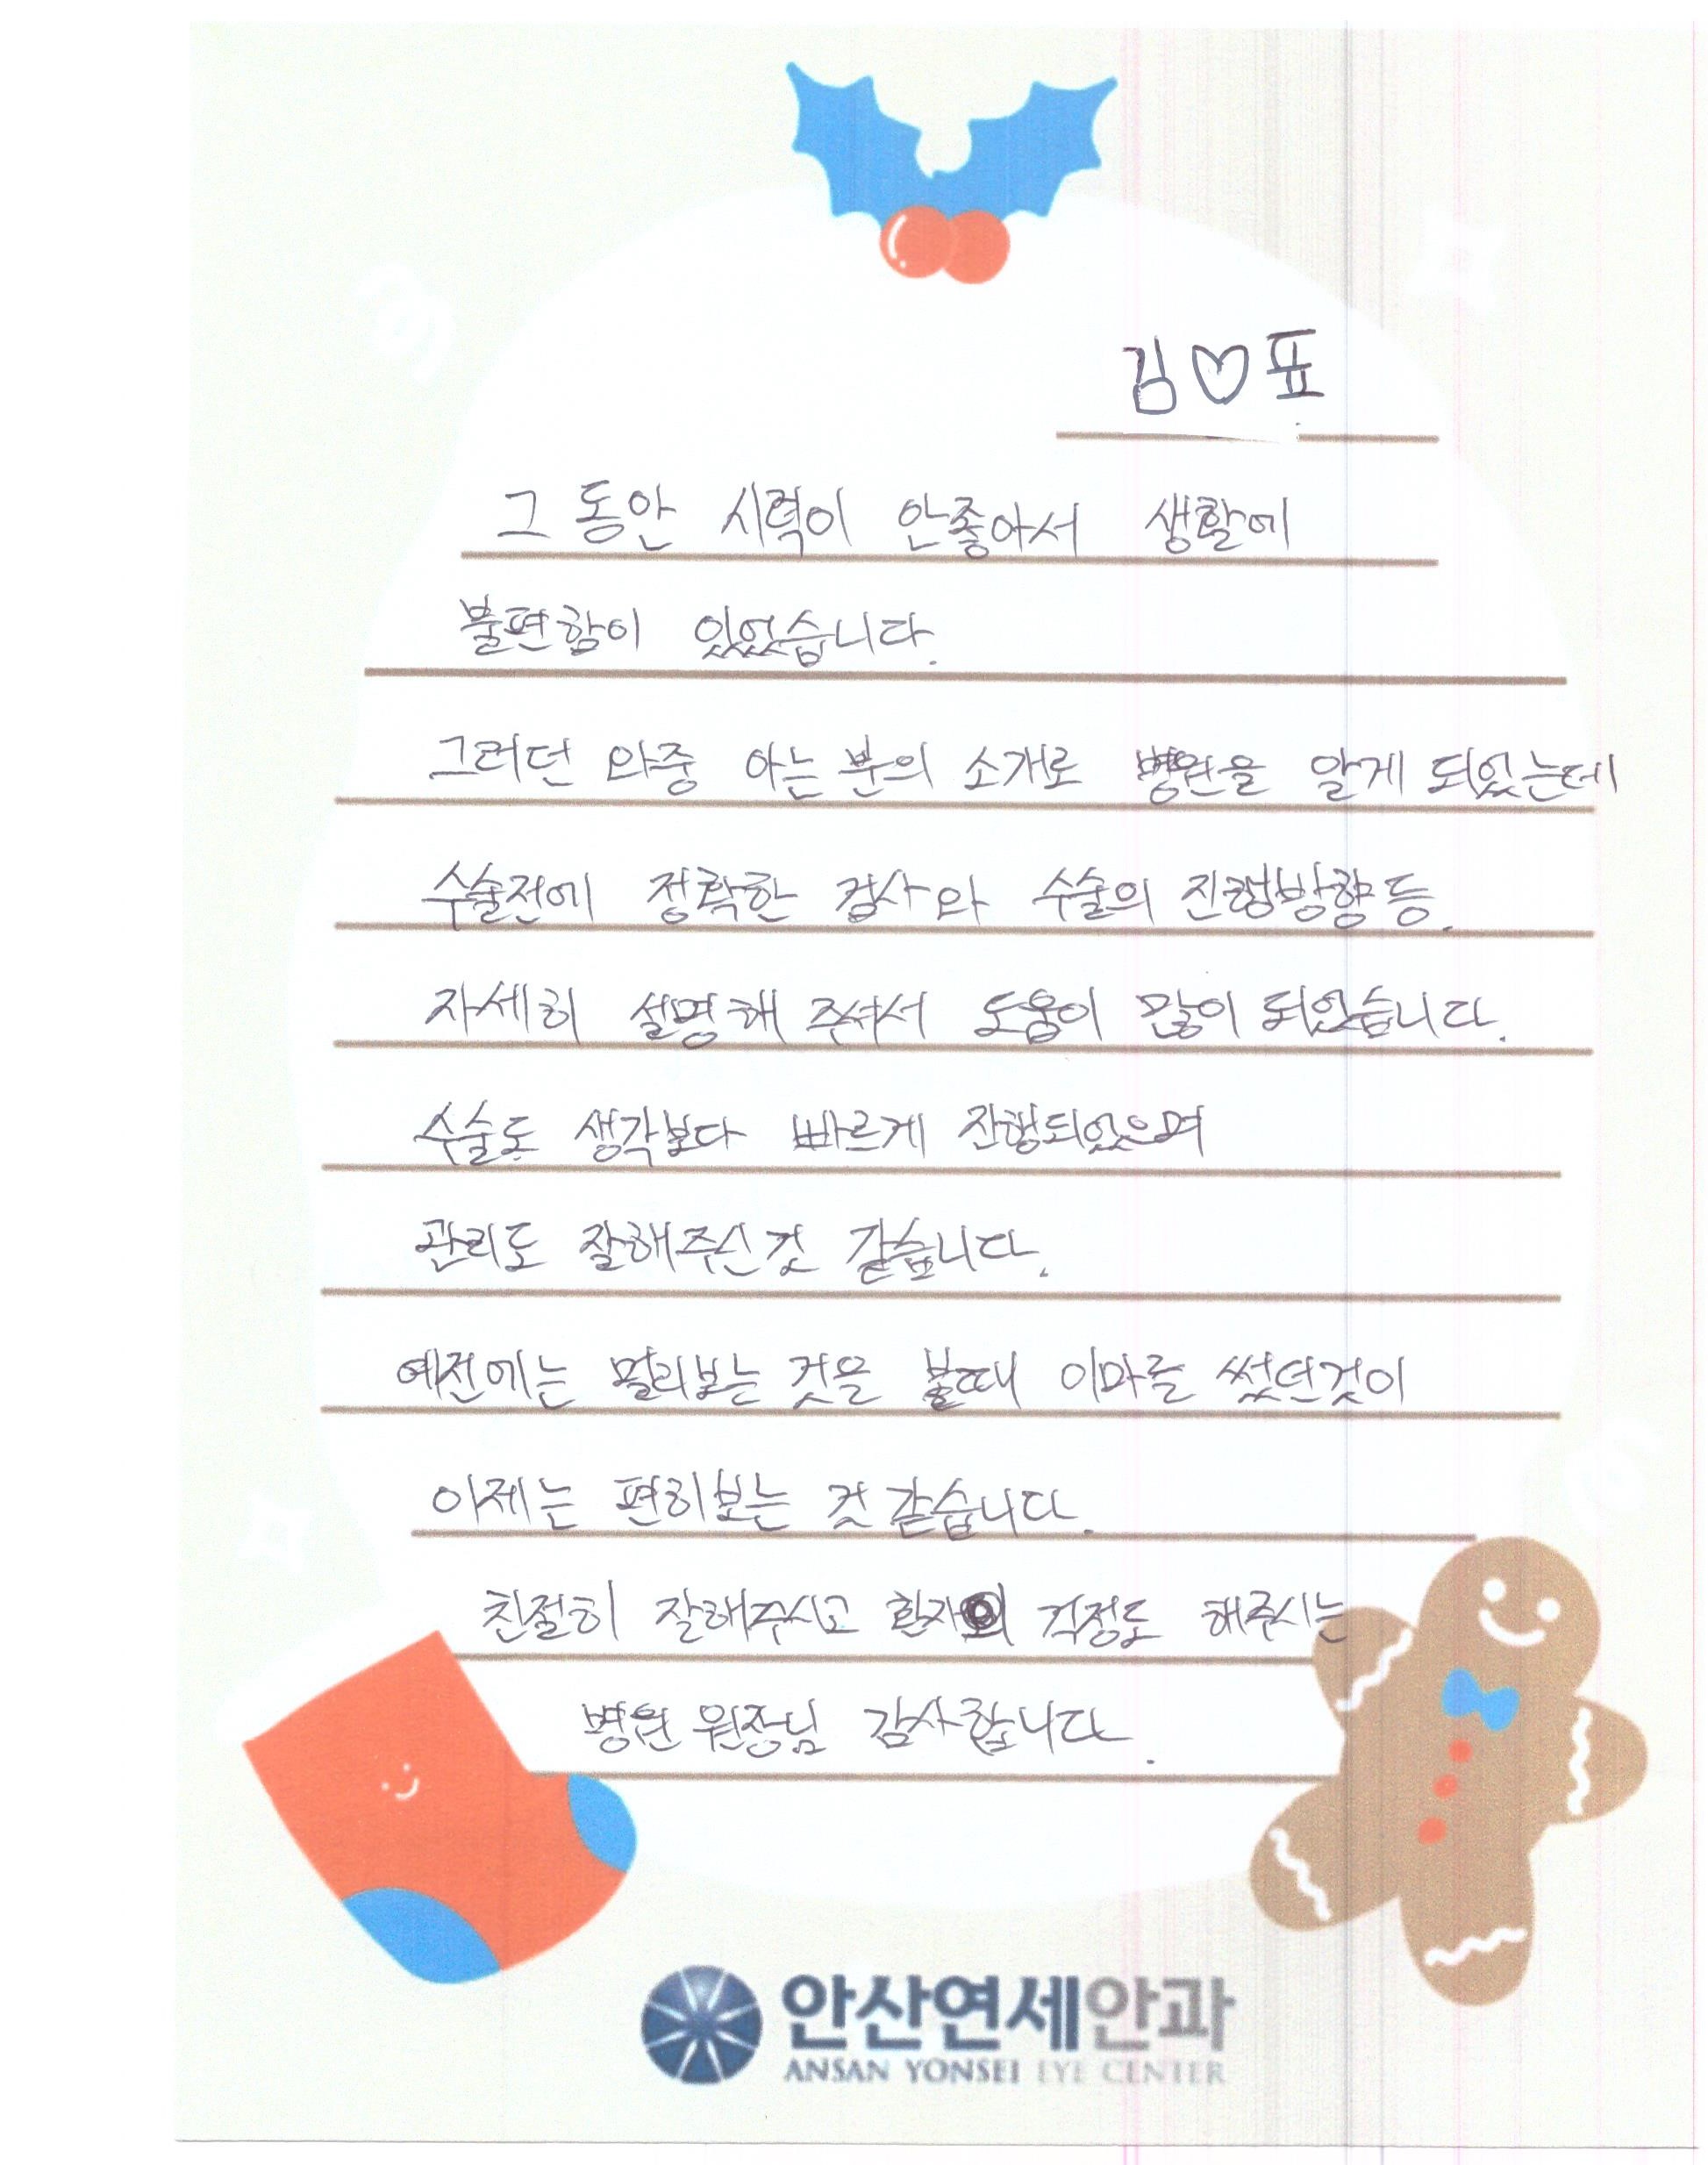 김♡표
그 동안 시력이 안좋아서 생활에
불편함이 있었습니다.
그러던 와중 아는 분의 소개로 병원을 알게 되었는데
수술전에 정확한 검사와 수술의 진행방향 등.
자세히 설명해 주셔서 도움이 많이 되었습니다.
수술도 생각보다 빠르게 진행되었으며
관리도 잘해주신것 같습니다.
예전에는 멀리보는 것을 볼때 이마를 썼던것이
이제는 편히보는 것 같습니다.
친절히 잘해주시고 환자의 걱정도 해주시는
병원 원장님 감사합니다.
안산연세안과
ANSAN YONSEI EYE CENTER